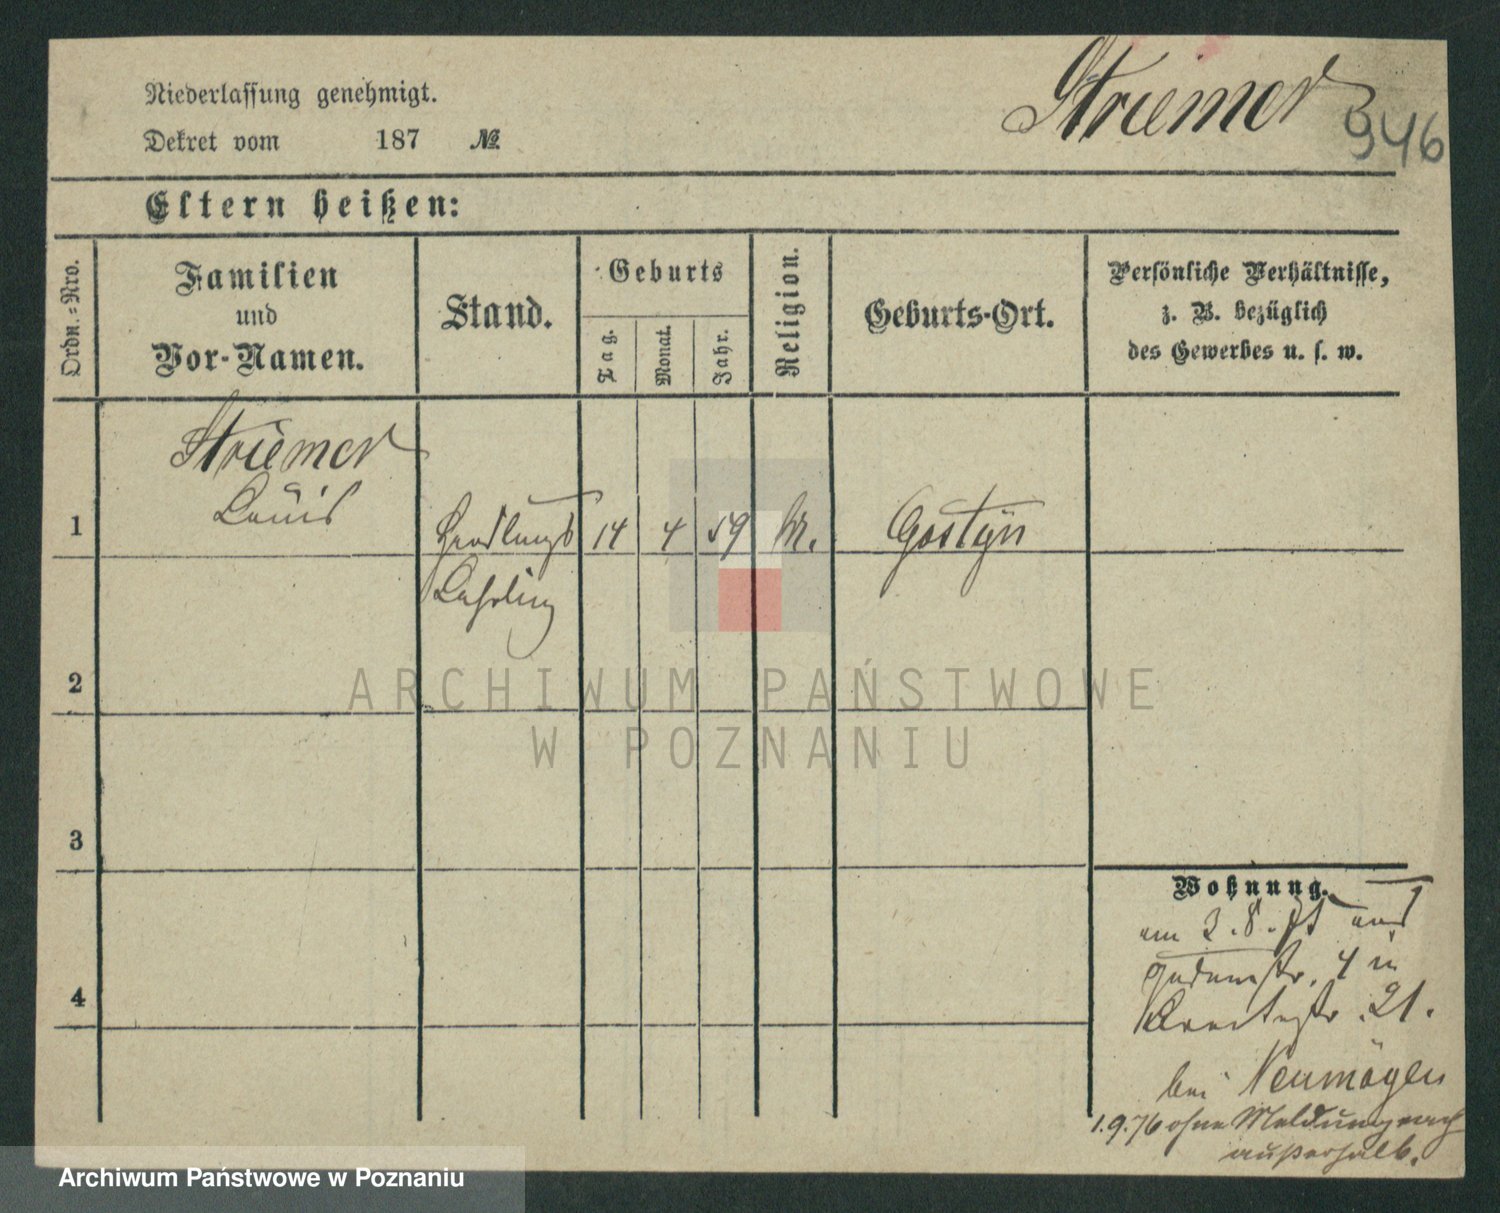 Niederlassung genehmigt.
Striemer
946
Dekret vom 187 №
Eltern heißen:
Ordn.-Nro.
Familien
und
Vor-Namen.
Stand.
Geburts
Tag.
Monat.
Jahr.
Religion.
Geburts-Ort.
Persönliche Verhältnisse,
z. B. bezüglich
des Gewerbes u. s. w.
Striemer
Louis
1
Handlungs 14 4 59 M. Gostyn
Lehrling
2
ARCHIWUM PAŃSTWOWE
W POZNANIU
3
Wohnung.
am 3.8.75 aus
Judenstr. 4 in
Breitestr. 21.
4
bei Neumögen
1.9.76 ohne Meldung nach
außerhalb.
Archiwum Państwowe w Poznaniu